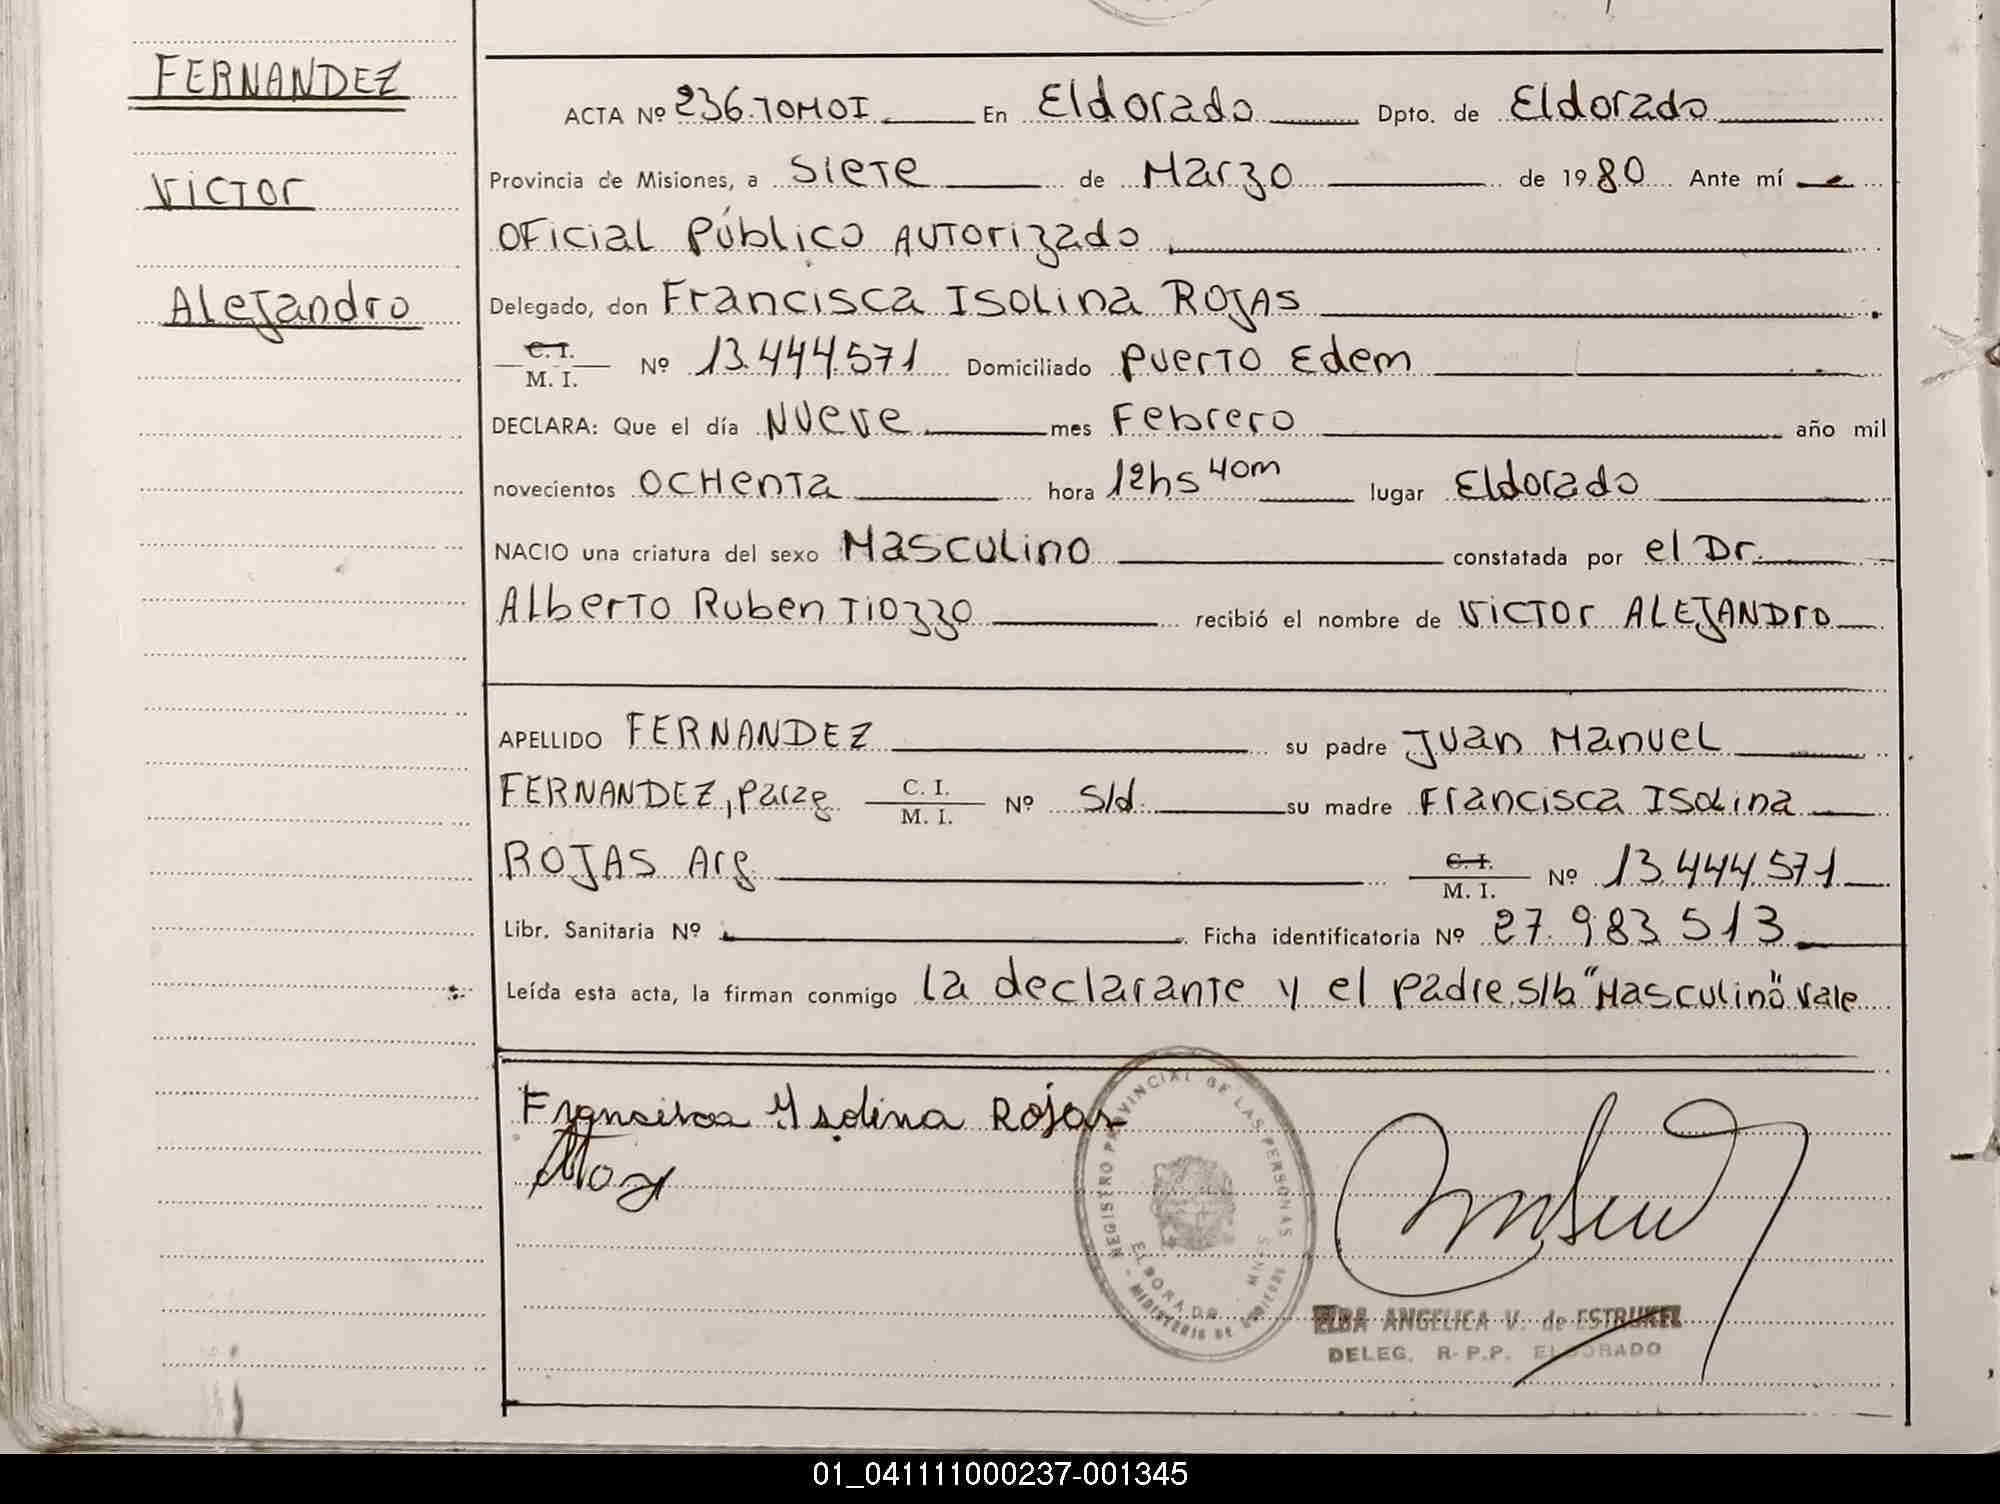 FERNANDEZ
VICTOR
Alejandro
ACTA Nº 236.TOMOI. En Eldorado Dpto. de Eldorado
Provincia de Misiones, a siete de Marzo de 1980 Ante mí
Oficial Público Autorizado
Delegado, don Francisca Isolina ROJAS
C. I.
M. I. Nº 13.444.571 Domiciliado Puerto Edem
DECLARA: Que el día Nueve mes Febrero año mil
novecientos OCHENTA hora 12hs 40m lugar Eldorado
NACIO una criatura del sexo Masculino constatada por el Dr.
Alberto Ruben Tiozzo recibió el nombre de VICTOR ALEJANDRO
APELLIDO FERNANDEZ su padre Juan Manuel
FERNANDEZ, parag. C. I.
M. I. Nº s/d. su madre Francisca Isolina
ROJAS Arg. C. I.
M. I. Nº 13.444.571
Libr. Sanitaria Nº Ficha identificatoria Nº 27.983.513
Leída esta acta, la firman conmigo la declarante y el padre. s/b "Masculino" Vale
Francisca Ysolina Rojas
REGISTRO PROVINCIAL DE LAS PERSONAS
ELDORADO - MNES.
MINISTERIO DE GOBIERNO
ELBA ANGELICA V. de ESTRUKEL
DELEG. R.P.P. ELDORADO
01_041111000237-001345